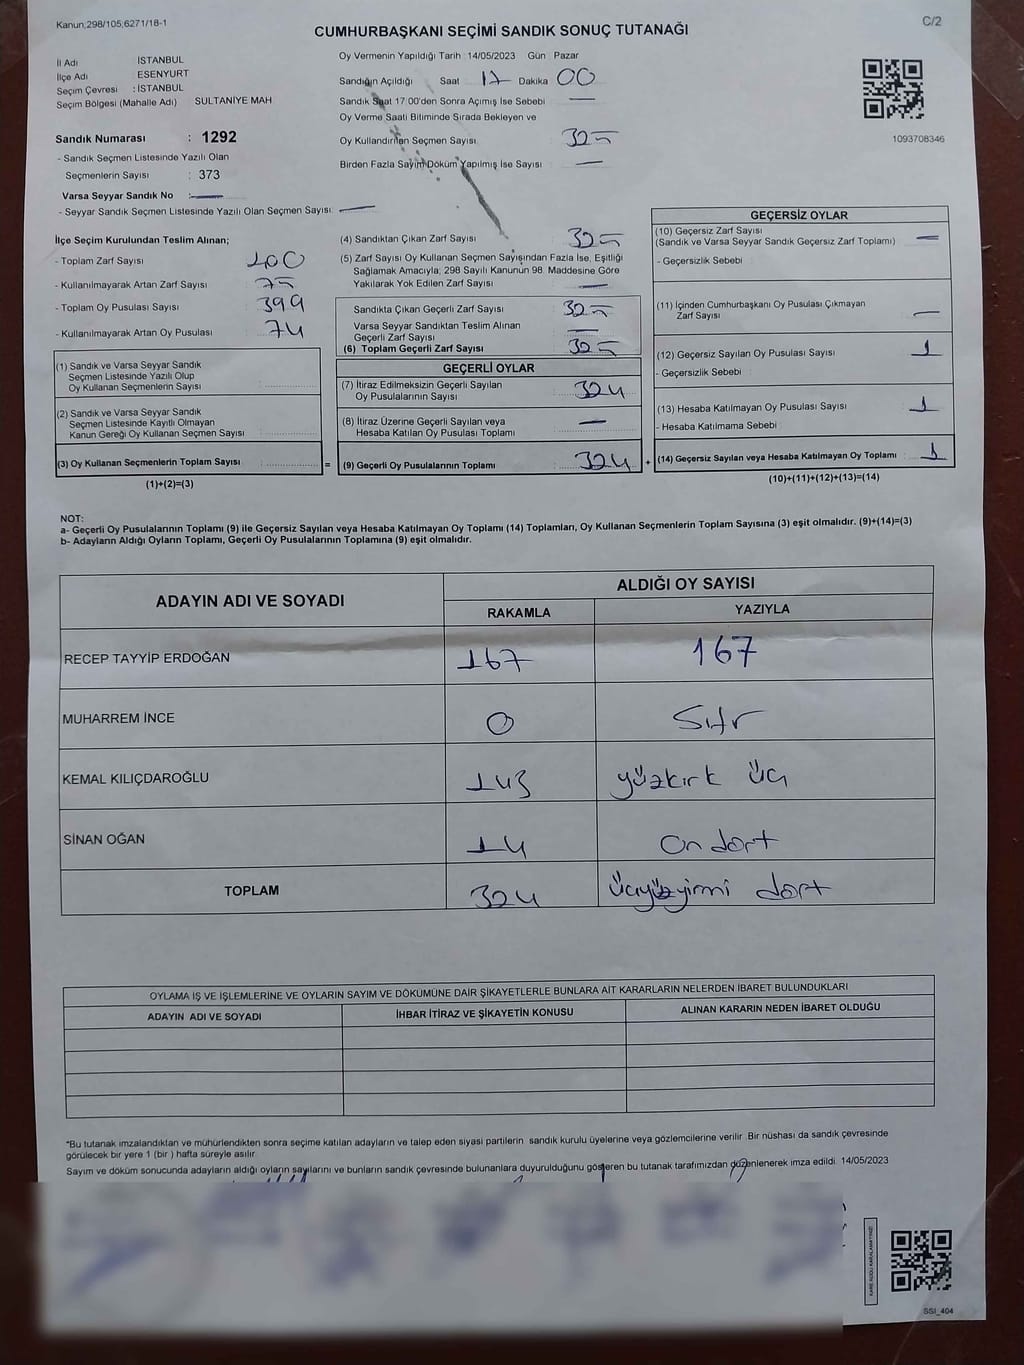 Kanun;298/105;6271/18-1
C/2
CUMHURBAŞKANI SEÇİMİ SANDIK SONUÇ TUTANAĞI
İl Adı İSTANBUL
İlçe Adı ESENYURT
Seçim Çevresi : İSTANBUL
Seçim Bölgesi (Mahalle Adı) SULTANİYE MAH
Sandık Numarası : 1292
- Sandık Seçmen Listesinde Yazılı Olan
Seçmenlerin Sayısı : 373
Varsa Seyyar Sandık No : —
- Seyyar Sandık Seçmen Listesinde Yazılı Olan Seçmen Sayısı: —
Oy Vermenin Yapıldığı Tarih : 14/05/2023 Gün Pazar
Sandığın Açıldığı Saat 17 Dakika 00
Sandık Saat 17:00'den Sonra Açımış İse Sebebi —
Oy Verme Saati Bitiminde Sırada Bekleyen ve
Oy Kullandırılan Seçmen Sayısı : 325
Birden Fazla Sayım Döküm Yapılmış İse Sayısı : —
1093708346
İlçe Seçim Kurulundan Teslim Alınan;
- Toplam Zarf Sayısı : 400
- Kullanılmayarak Artan Zarf Sayısı : 75
- Toplam Oy Pusulası Sayısı : 399
- Kullanılmayarak Artan Oy Pusulası : 74
(1) Sandık ve Varsa Seyyar Sandık
Seçmen Listesinde Yazılı Olup
Oy Kullanan Seçmenlerin Sayısı
(2) Sandık ve Varsa Seyyar Sandık
Seçmen Listesinde Kayıtlı Olmayan
Kanun Gereği Oy Kullanan Seçmen Sayısı
(3) Oy Kullanan Seçmenlerin Toplam Sayısı =
(1)+(2)=(3)
(4) Sandıktan Çıkan Zarf Sayısı : 325
(5) Zarf Sayısı Oy Kullanan Seçmen Sayısından Fazla İse, Eşitliği
Sağlamak Amacıyla; 298 Sayılı Kanunun 98. Maddesine Göre
Yakılarak Yok Edilen Zarf Sayısı : —
Sandıkta Çıkan Geçerli Zarf Sayısı : 325
Varsa Seyyar Sandıktan Teslim Alınan
Geçerli Zarf Sayısı : —
(6) Toplam Geçerli Zarf Sayısı : 325
GEÇERLİ OYLAR
(7) İtiraz Edilmeksizin Geçerli Sayılan
Oy Pusulalarının Sayısı : 324
(8) İtiraz Üzerine Geçerli Sayılan veya
Hesaba Katılan Oy Pusulası Toplamı : —
(9) Geçerli Oy Pusulalarının Toplamı : 324 +
GEÇERSİZ OYLAR
(10) Geçersiz Zarf Sayısı
(Sandık ve Varsa Seyyar Sandık Geçersiz Zarf Toplamı) : —
- Geçersizlik Sebebi :
(11) İçinden Cumhurbaşkanı Oy Pusulası Çıkmayan
Zarf Sayısı : —
(12) Geçersiz Sayılan Oy Pusulası Sayısı : 1
- Geçersizlik Sebebi :
(13) Hesaba Katılmayan Oy Pusulası Sayısı : 1
- Hesaba Katılmama Sebebi :
(14) Geçersiz Sayılan veya Hesaba Katılmayan Oy Toplamı : 1
(10)+(11)+(12)+(13)=(14)
NOT:
a- Geçerli Oy Pusulalarının Toplamı (9) ile Geçersiz Sayılan veya Hesaba Katılmayan Oy Toplamı (14) Toplamları, Oy Kullanan Seçmenlerin Toplam Sayısına (3) eşit olmalıdır. (9)+(14)=(3)
b- Adayların Aldığı Oyların Toplamı, Geçerli Oy Pusulalarının Toplamına (9) eşit olmalıdır.
ADAYIN ADI VE SOYADI ALDIĞI OY SAYISI
RAKAMLA YAZIYLA
RECEP TAYYİP ERDOĞAN 167 167
MUHARREM İNCE 0 Sıfır
KEMAL KILIÇDAROĞLU 143 yüzkırk üç
SİNAN OĞAN 14 On dört
TOPLAM 324 Üçyüzyirmi dört
OYLAMA İŞ VE İŞLEMLERİNE VE OYLARIN SAYIM VE DÖKÜMÜNE DAİR ŞİKAYETLERLE BUNLARA AİT KARARLARIN NELERDEN İBARET BULUNDUKLARI
ADAYIN ADI VE SOYADI İHBAR İTİRAZ VE ŞİKAYETİN KONUSU ALINAN KARARIN NEDEN İBARET OLDUĞU
*Bu tutanak imzalandıktan ve mühürlendikten sonra seçime katılan adayların ve talep eden siyasi partilerin sandık kurulu üyelerine veya gözlemcilerine verilir. Bir nüshası da sandık çevresinde
görülecek bir yere 1 (bir ) hafta süreyle asılır.
Sayım ve döküm sonucunda adayların aldığı oyların sayılarını ve bunların sandık çevresinde bulunanlara duyurulduğunu gösteren bu tutanak tarafımızdan düzenlenerek imza edildi. 14/05/2023
KARE KODU KARALAMAYINIZ!
SSI_404